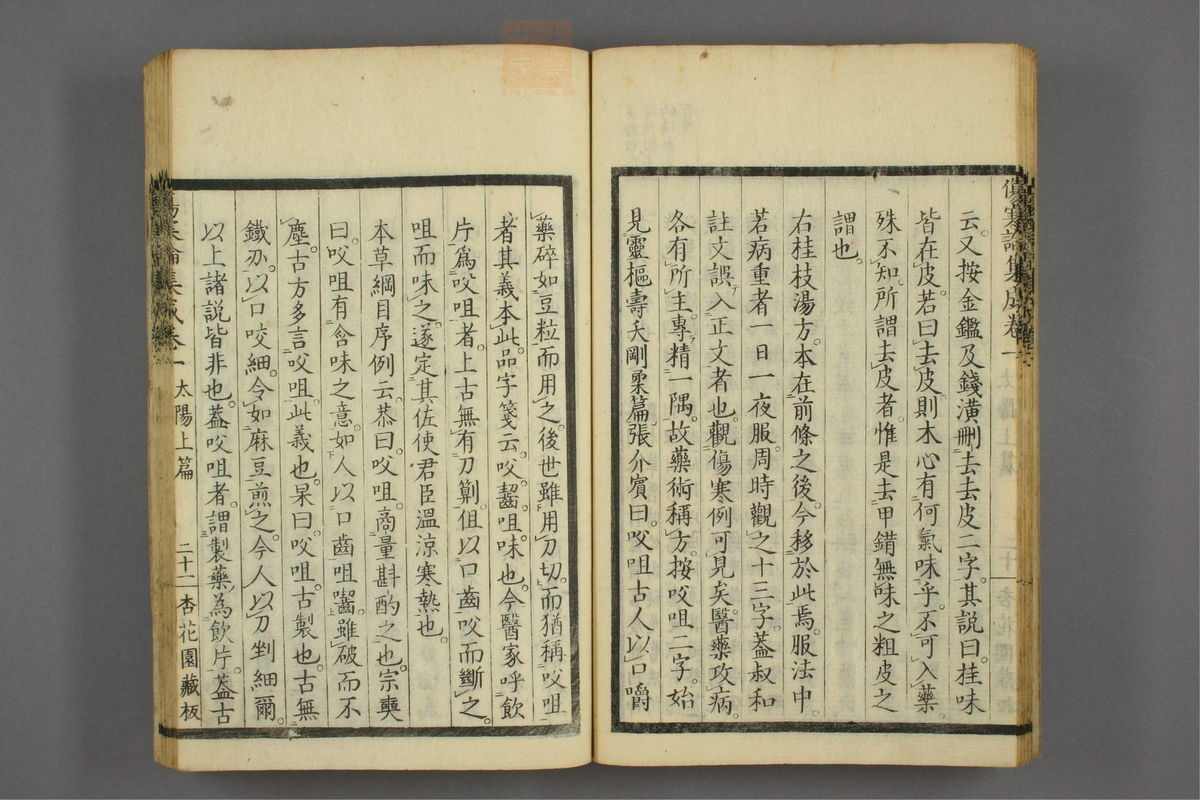 傷寒論集成卷一
云。又按金鑑及錢潢刪去去皮二字。其説曰桂味
皆在皮。若曰去皮。則木心有何氣味乎。不可入藥。
殊不知。所謂去皮者。惟是去甲錯無味之粗皮之
謂也。
右桂枝湯方。本在前條之後。今移於此焉。服法中。
若病重者一日一夜服。周時觀之十三字。蓋叔和
註文誤入正文者也。觀傷寒例可見矣。醫藥攻病。
各有所主。專精一隅。故藥術稱方。按㕮咀二字。始
見靈樞壽夭剛柔篇。張介賓曰。㕮咀古人以口嚼
藥碎如豆粒而用之。後世雖用刀切。而猶稱㕮咀
者其義本此。品字箋云。㕮。齧。咀。味也。今醫家呼飲
片爲㕮咀者。上古無有刀劗。但以口齒㕮而斷之。
咀而味之。遂定其佐使君臣溫涼寒熱也。
本草綱目序例云。恭曰。㕮咀。商量斟酌之也。宗奭
曰。㕮咀有含味之意。如人以口齒咀嚙。雖破而不
塵。古方多言㕮咀。此義也。杲曰。㕮咀。古製也。古無
鐵刃。以口㕮細。令如麻豆煎之。今人以刀剉細爾。
以上諸説皆非也。蓋㕮咀者。謂製藥為飲片。蓋古
傷寒論集成卷一 太陽上篇 二十二 杏花園藏板